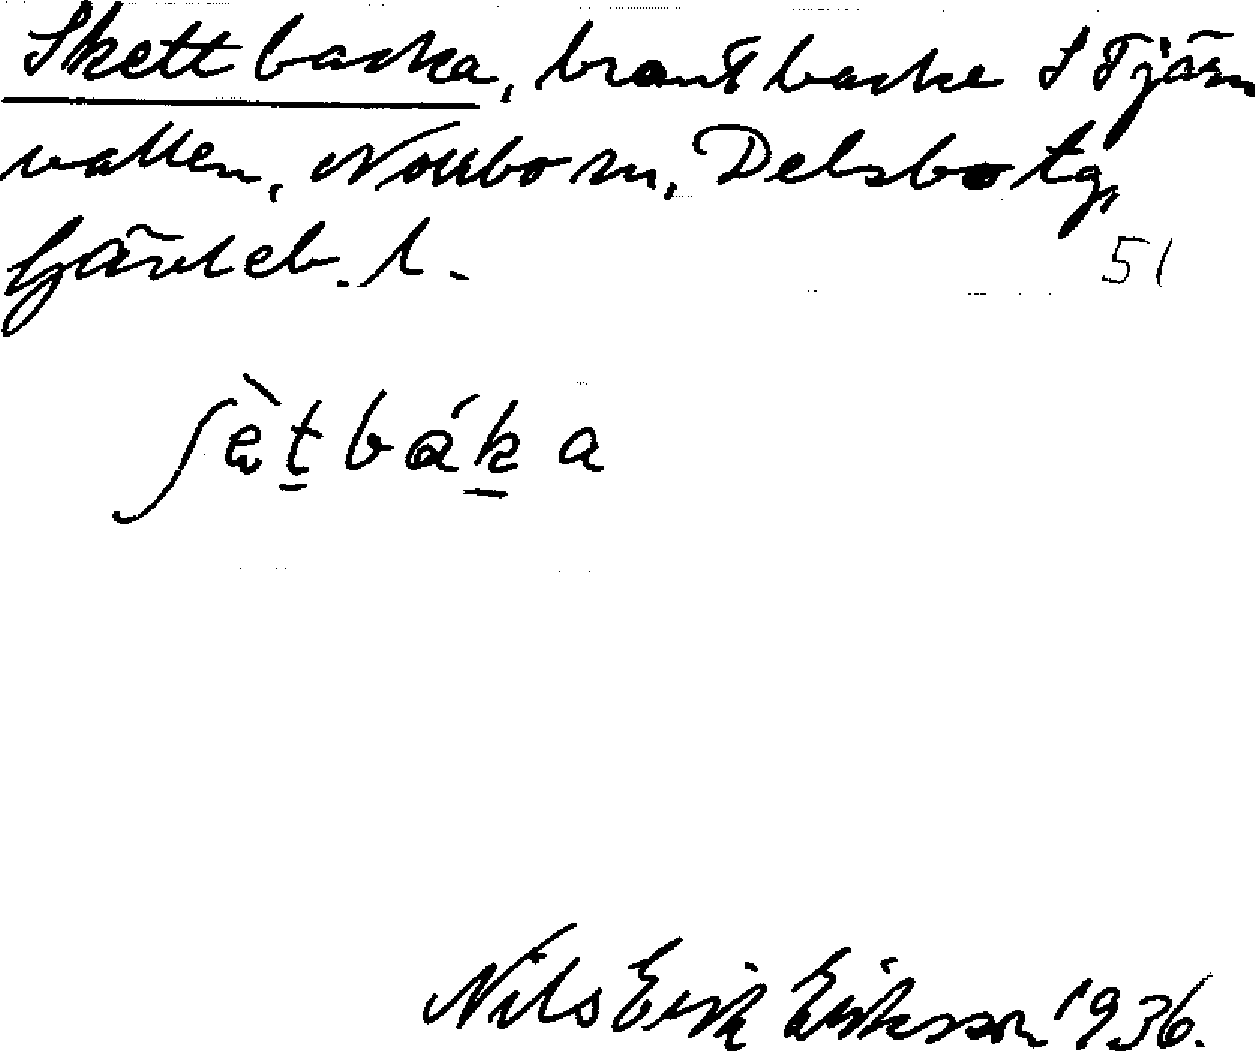 Skettbacka, brant backe S Tjärn
vallen, Norrbo sn, Delsbo tg,
Gävleb. l.
51
ʃὲt̠bák̠a
Nils Erik Eriksson 1936.